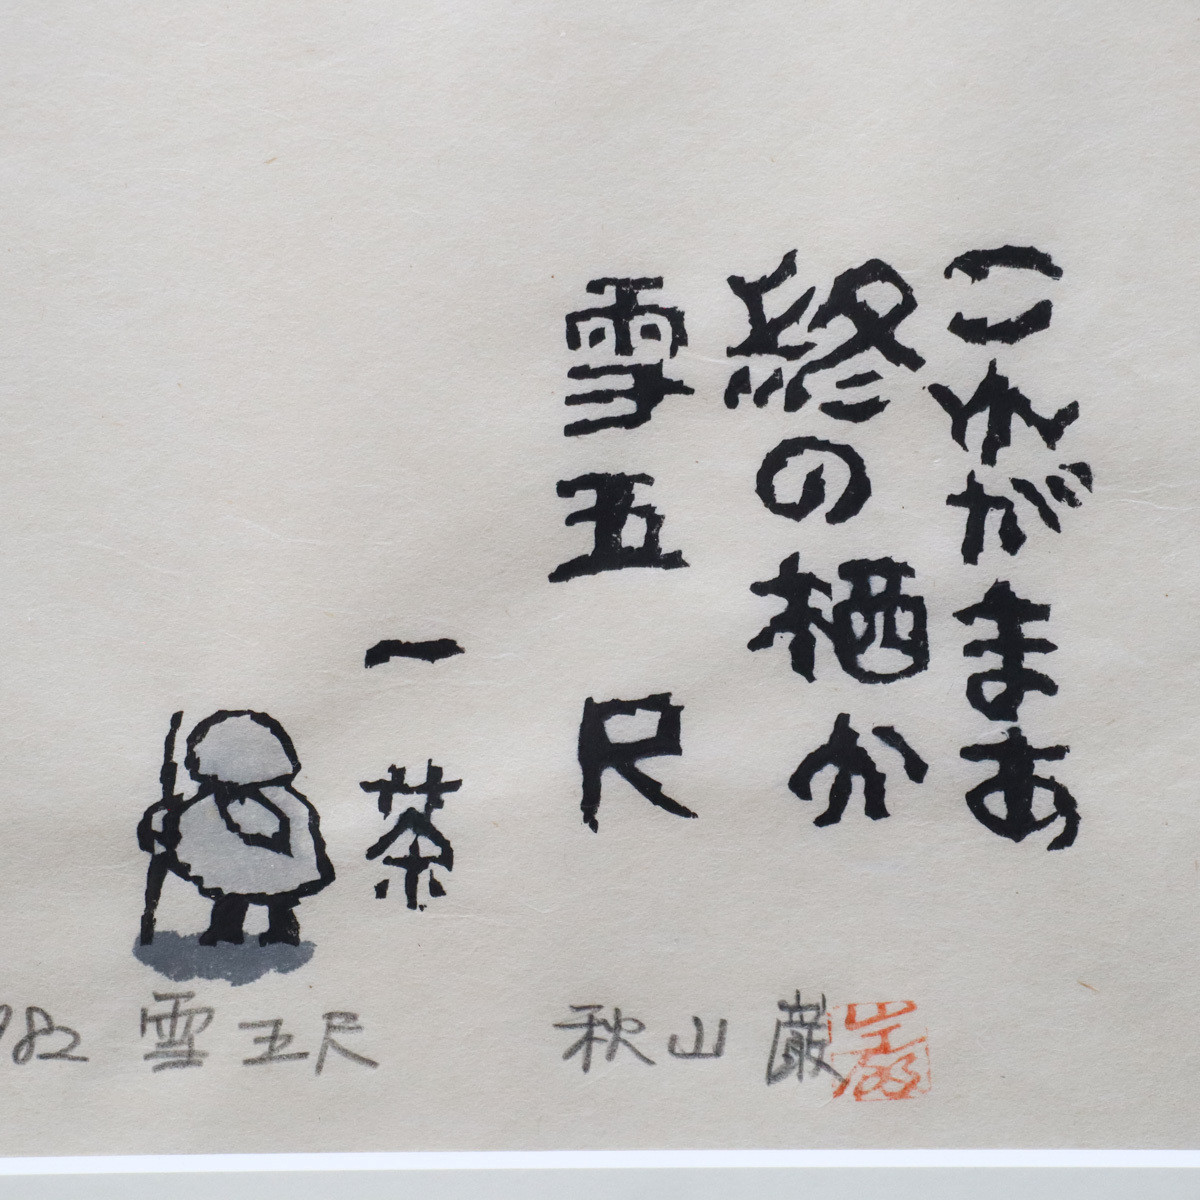 これがまあ
終の栖か
雪五尺
一茶
982 雪五尺 秋山巌